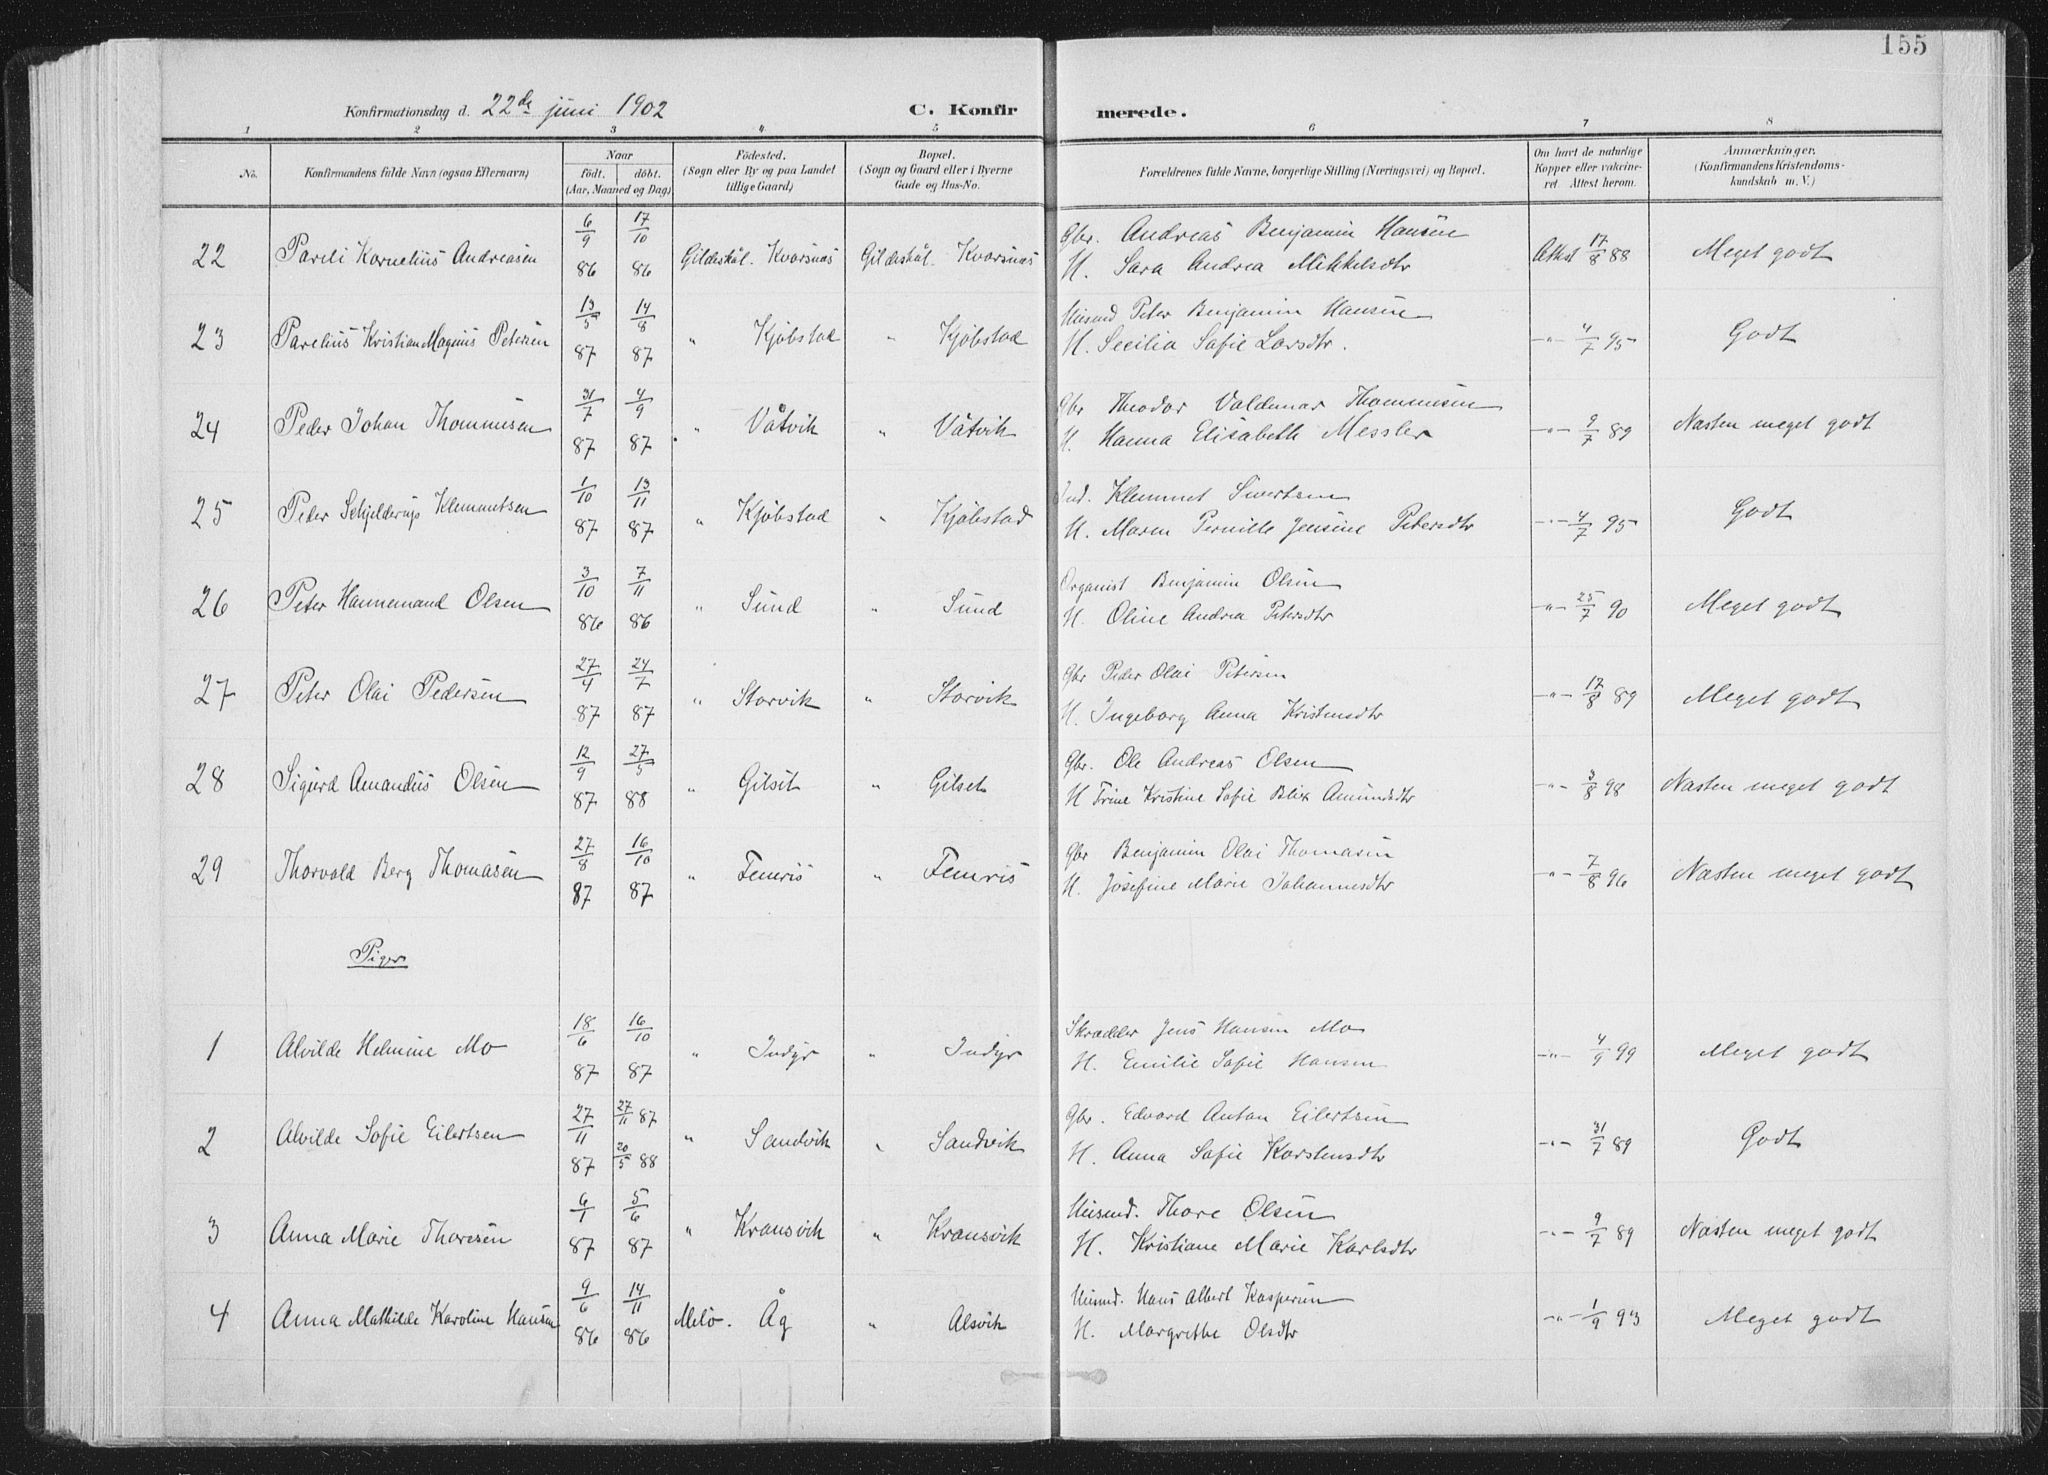 155
Konfirmationsdag d. 22de juni 1902 C. Konfirmerede.
1 2 3 4. 5 6 7 8
No. Konfirmandens fulde Navn (ogsaa Efternavn) Naar födt. döbt. (Aar, Maaned og Dag) Födested. (Sogn eller By og paa Landet tillige Gaard) Bopæl. (Sogn og Gaard eller i Byerne Gade og Hus-No. Forældrenes fulde Navne, borgerlige Stilling (Næringsvei) og Bopæl. Om havt de naturlige Kopper eller vakcineret. Attest herom. Anmærkninger. (Konfirmandens Kristendomskundskab m. V.)
22 Pareli Kornelius Andreasen 6/9 86 17/10 86 Gildeskål. Kvarsnæs Gildeskål. Kvarsnæs Gbr. Andreas Benjamin Hansen
H. Sara Andrea Mikkelsdtr Attest 17/8 88 Meget godt
23 Parelius Kristian Magnus Petersen 13/5 87 14/8 87 " Kjøbstad " Kjøbstad Husmd Peter Benjamin Hansen
H. Secilia Sofie Larsdtr. -"- 4/7 95 Godt
24 Peder Johan Thommesen 31/7 87 4/9 87 " Våtvik " Våtvik Gbr Theodor Valdemar Thommesen
H. Hanna Elisabeth Messler -"- 9/7 89 Næsten meget godt
25 Peder Schjelderup Klemmetsen 1/10 87 13/11 87 " Kjøbstad " Kjøbstad Ind. Klemmet Sivertsen
H. Maren Pernille Jensine Petersdtr -"- 4/7 95 Godt
26 Peter Hannemand Olsen 3/10 86 7/11 86 " Sund " Sund Organist Benjamin Olsen
H. Oline Andrea Petersdtr -"- 25/7 90 Meget godt
27 Peter Olai Pedersen 27/4 87 24/7 87 " Storvik " Storvik Gbr Peder Olai Petersen
H. Ingeborg Anna Kristensdtr -"- 17/8 89 Meget godt
28 Sigurd Amandus Olsen 12/9 87 27/5 88 " Gilset " Gilset Gbr. Ole Andreas Olsen
H Trine Kristine Sofie Blix Amundsdtr -"- 3/8 98 Næsten meget godt
29 Thorvald Berg Thomasen 27/8 87 16/10 87 " Femris " Femris Gbr Benjamin Olai Thomasen
H. Josefine Marie Johannesdtr -"- 7/8 96 Næsten meget godt
Piger
1 Alvilde Helmine Mo 18/6 87 16/10 87 " Indyr " Indyr Skrædder Jens Hansen Mo
H. Emilie Sofie Hansen -"- 4/9 99 Meget godt
2 Alvilde Sofie Eilertsen 27/11 87 27/11 87 20/5 88 " Sandvik " Sandvik Gbr. Edvard Anton Eilertsen
H. Anna Sofie Karstensdtr -"- 31/7 89 Godt
3 Anna Marie Thoresen 6/1 87 5/6 87 " Kransvik " Kransvik Husmd. Thore Olsen
H. Kristiane Marie Karlsdtr -"- 9/7 89 Næsten meget godt
4 Anna Mathilde Karoline Hansen 9/6 86 14/11 86 Melö. Åg " Alsvik Husmd. Hans Albert Kaspersen
H. Margrethe Olsdtr -"- 1/9 93 Meget godt